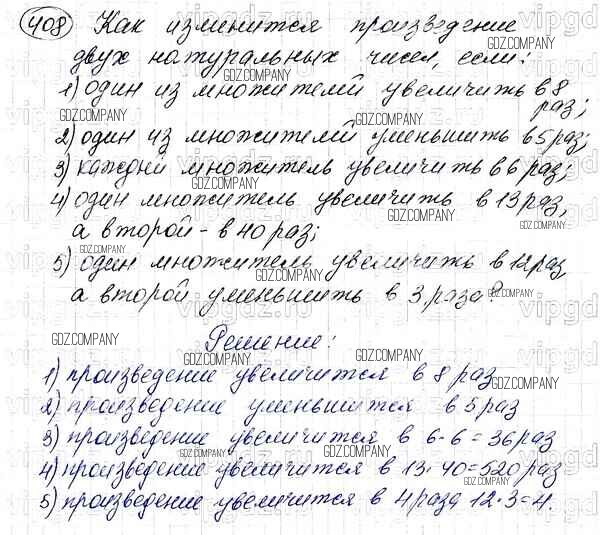 408 Как изменится произведение
двух натуральных чисел, если:
1) один из множителей увеличить в 8
раз;
2) один из множителей уменьшить в 5 раз;
3) каждый множитель увеличить в 6 раз;
4) один множитель увеличить в 13 раз,
а второй - в 40 раз;
5) один множитель увеличить в 12 раз
а второй уменьшить в 3 раза?
Решение:
1) произведение увеличится в 8 раз
2) произведение уменьшится в 5 раз
3) произведение увеличится в 6·6=36 раз
4) произведение увеличится в 13·40=520 раз
5) произведение увеличится в 4 раза 12·3=4.
GDZ.COMPANY
vipgdz.ru